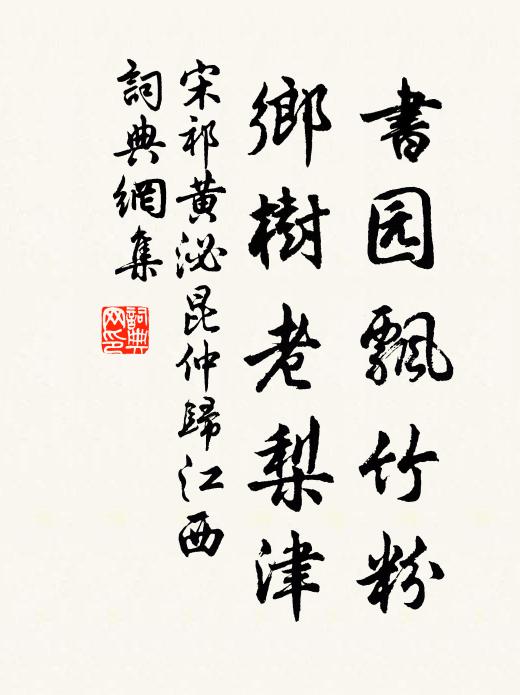 書园飄竹粉
鄉樹老梨津
宋祁黄泌昆仲歸江西
詞典網集
詞典网印